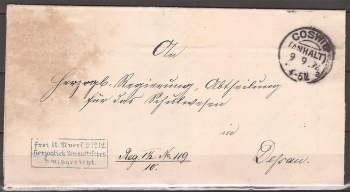 COSWIG
(ANHALT)
9 9
4-5N
An
Herzogl. Regierung, Abtheilung
für das Schulwesen
in
Dessau.
frei lt. Avers.
Herzoglich Anhaltisches
Amtsgericht.
Reg. No. 119
10.